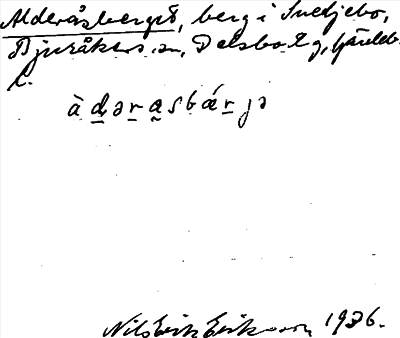 Alderåsberget, berg i Svedjebo,
Bjuråkers sn, Delsbo tg, Gävleb.
l.
àdərasbárjə
Nils Erik Eriksson 1936.